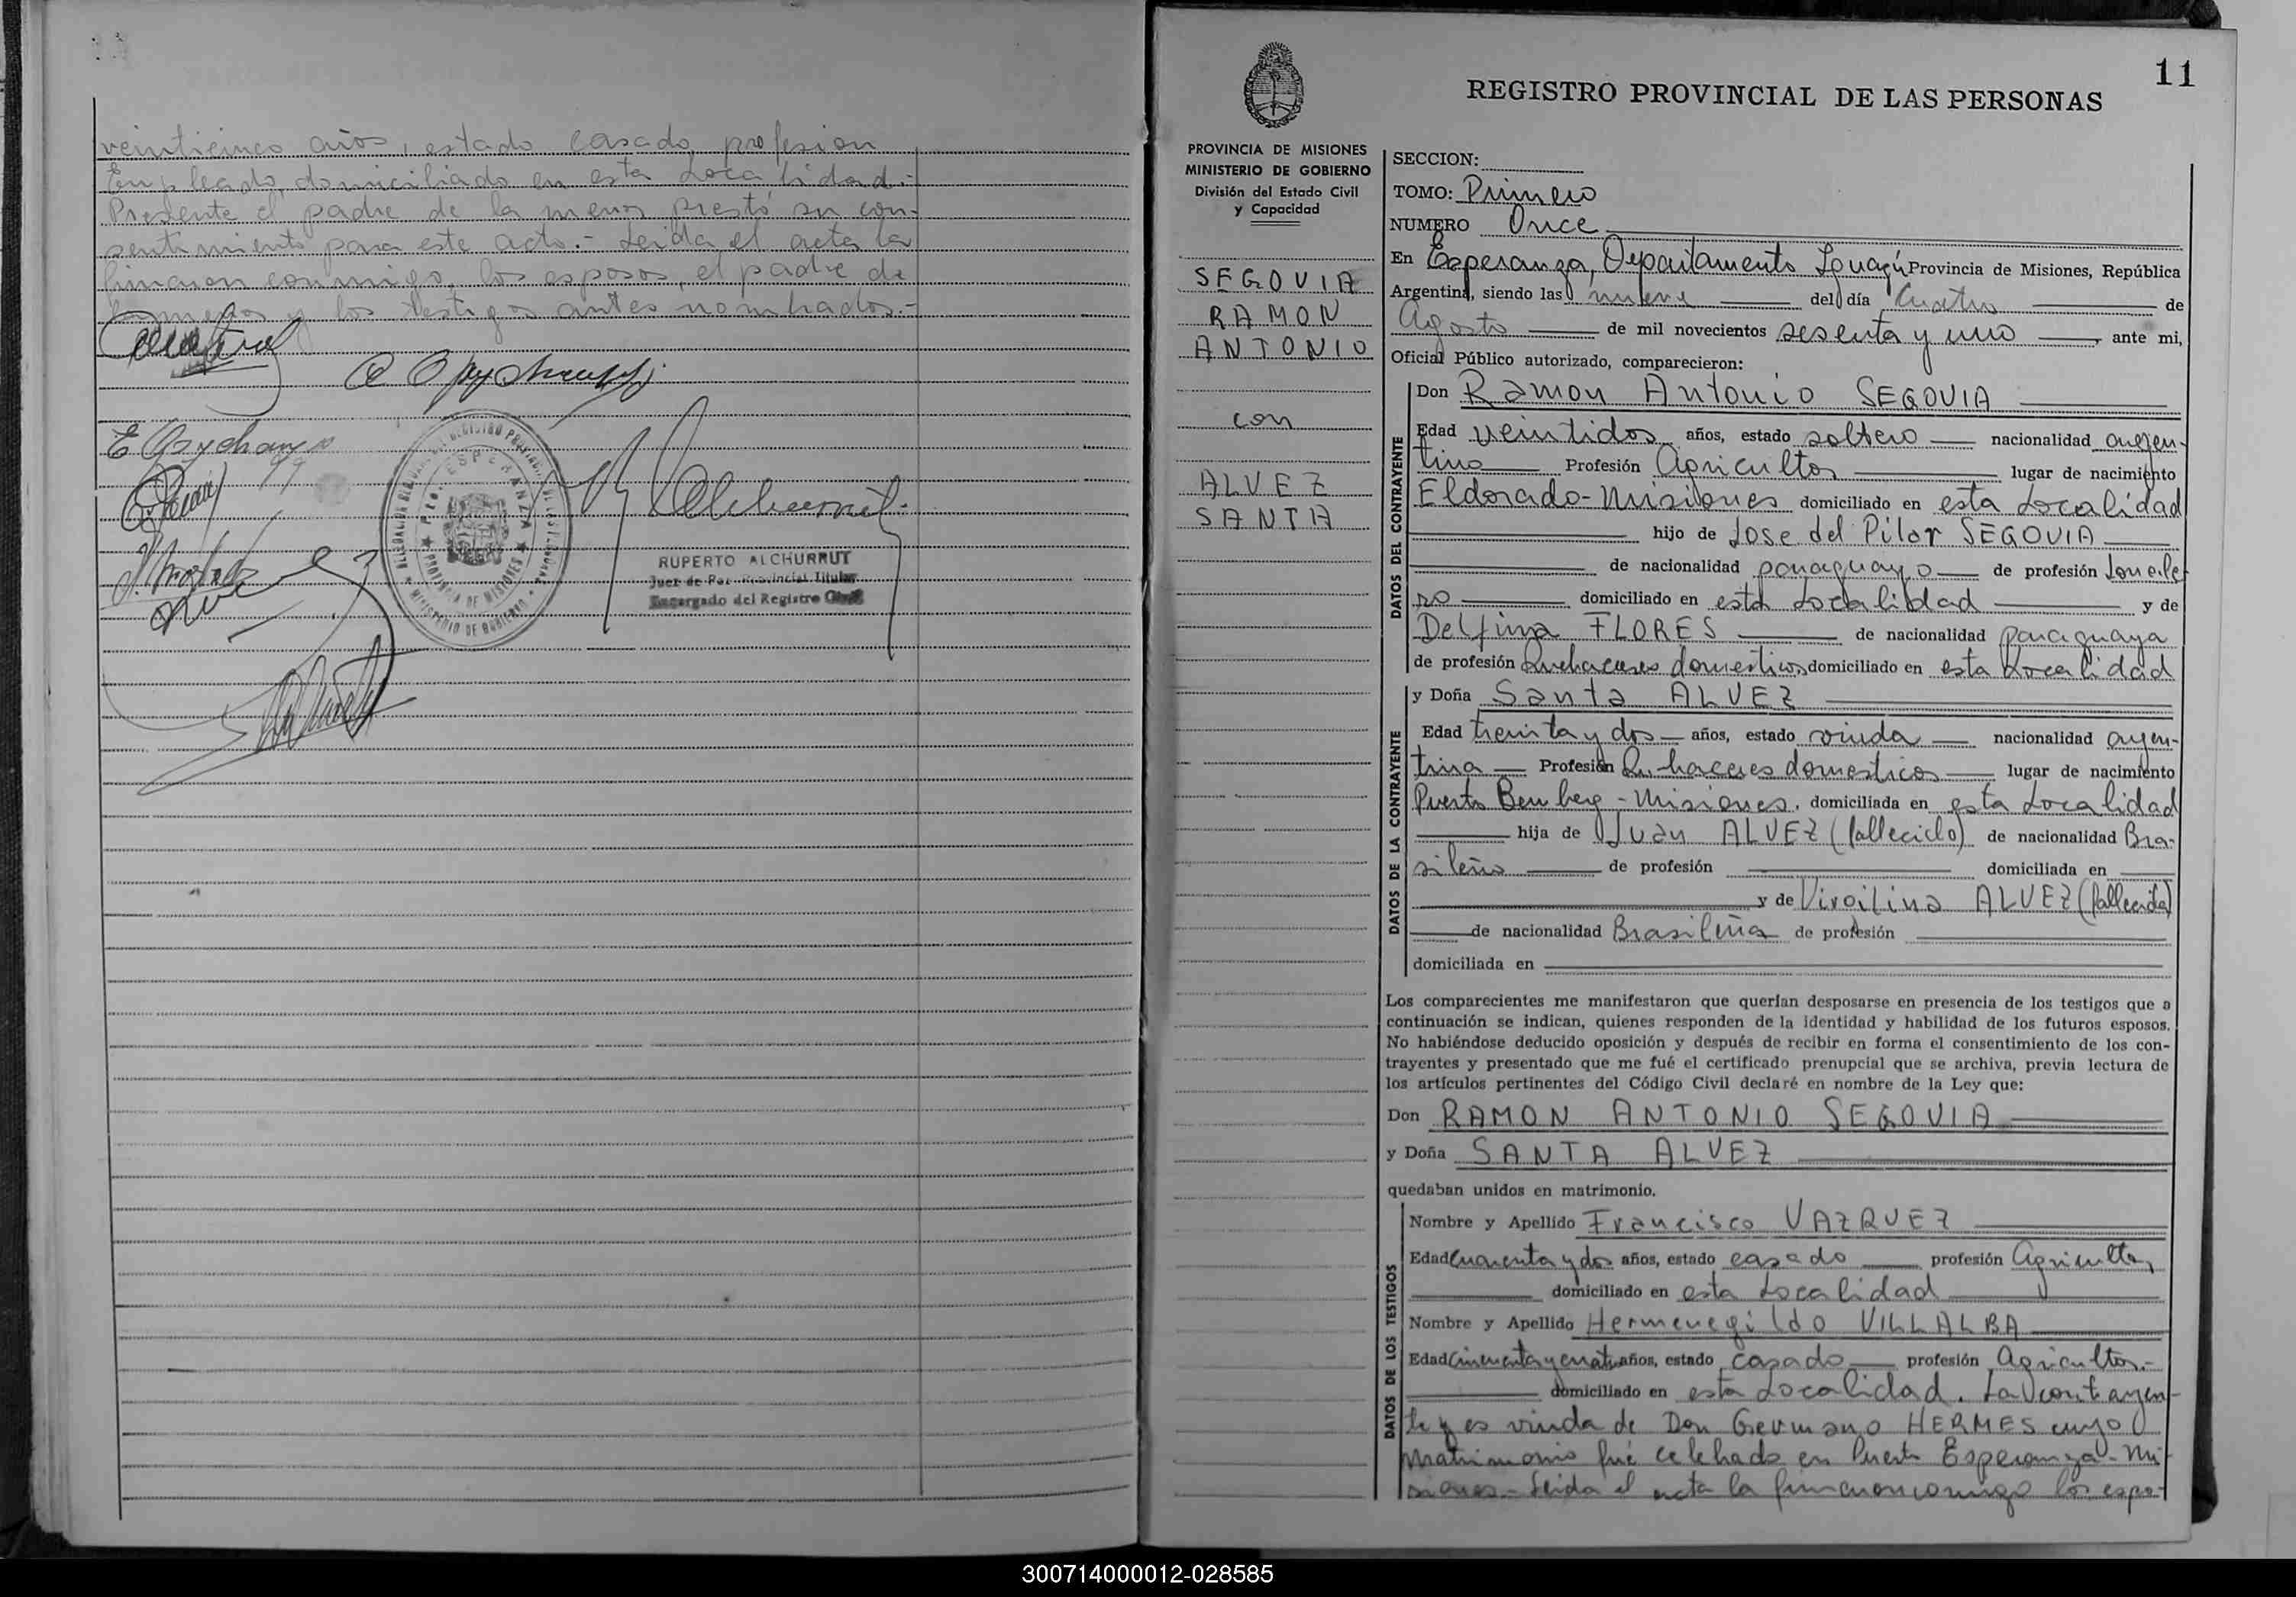 veinticinco años, estado casado, profesion
Empleado, domiciliado en esta Localidad.-
Presente el padre de la menor prestó su con-
sentimiento para este acto.- Leida el acta la
firmaron conmigo, los esposos, el padre de
la menor y los testigos antes nombrados.-
RUPERTO ALCHURRUT
Juez de Paz Provincial Titular
Encargado del Registro Civil
11
REGISTRO PROVINCIAL DE LAS PERSONAS
PROVINCIA DE MISIONES
MINISTERIO DE GOBIERNO
División del Estado Civil
y Capacidad
SEGOVIA
RAMON
ANTONIO
con
ALVEZ
SANTA
SECCION:
TOMO: Primero
NUMERO Once
En Esperanza, Departamento Iguazú Provincia de Misiones, República
Argentina, siendo las nueve del día Cuatro de
Agosto de mil novecientos sesenta y uno, ante mi,
Oficial Público autorizado, comparecieron:
DATOS DEL CONTRAYENTE
Don Ramon Antonio SEGOVIA
Edad veintidos años, estado soltero nacionalidad argen-
tino Profesión Agricultor lugar de nacimiento
Eldorado-Misiones domiciliado en esta Localidad
hijo de Jose del Pilar SEGOVIA
de nacionalidad paraguayo de profesión Jornale-
ro domiciliado en esta Localidad y de
Delfina FLORES de nacionalidad paraguaya
de profesión Quehaceres domesticos domiciliado en esta Localidad
DATOS DE LA CONTRAYENTE
y Doña Santa ALVEZ
Edad treinta y dos años, estado viuda nacionalidad argen-
tina Profesión Quehaceres domesticos lugar de nacimiento
Puerto Bemberg - Misiones, domiciliada en esta Localidad
hija de Juan ALVEZ (fallecido) de nacionalidad Bra-
sileño de profesión domiciliada en
y de Virgilina ALVEZ (fallecida)
de nacionalidad Brasileña de profesión
domiciliada en
Los comparecientes me manifestaron que querían desposarse en presencia de los testigos que a
continuación se indican, quienes responden de la identidad y habilidad de los futuros esposos.
No habiéndose deducido oposición y después de recibir en forma el consentimiento de los con-
trayentes y presentado que me fué el certificado prenupcial que se archiva, previa lectura de
los artículos pertinentes del Código Civil declaré en nombre de la Ley que:
Don RAMON ANTONIO SEGOVIA
y Doña SANTA ALVEZ
quedaban unidos en matrimonio.
DATOS DE LOS TESTIGOS
Nombre y Apellido Francisco VAZQUEZ
Edad Cuarenta y dos años, estado casado profesión Agricultor,
domiciliado en esta Localidad
Nombre y Apellido Hermenegildo VILLALBA
Edad Cincuenta y cuatro años, estado casado profesión Agricultor.-
domiciliado en esta Localidad. La contrayen-
te es viuda de Don Germano HERMES cuyo
matrimonio fué celebrado en Puerto Esperanza - Mi-
siones.- Leida el acta la firmaron conmigo los espo-
300714000012-028585